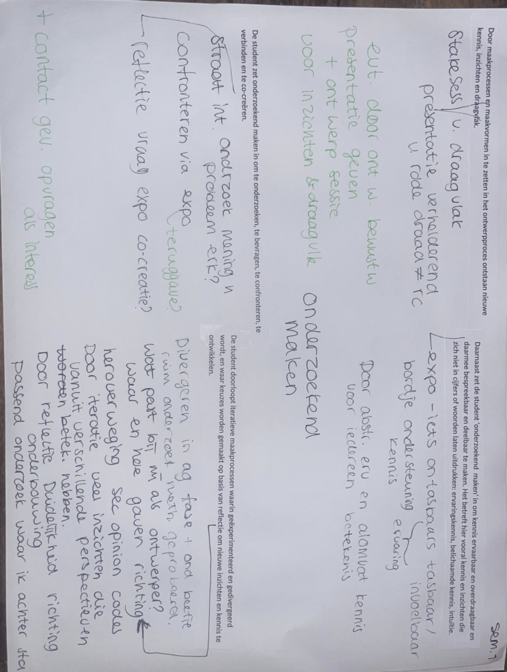 sem. 1
Door maakprocessen en maakvormen in te zetten in het ontwerpproces ontstaan nieuwe
kennis, inzichten en draagvlak.
presentatie verhelderend
rode draad ≠ rc
evt door ontw bewustw
presentatie geven
+ ontwerp sessie
voor inzichten & draagvlk
Daarnaast zet de student 'onderzoekend maken' in om kennis ervaarbaar en overdraagbaar en
daarmee bespreekbaar en deelbaar te maken. Het betreft hier vooral kennis en inzichten die
zich niet in cijfers of woorden laten uitdrukken: ervaringskennis, belichaamde kennis, intuïtie.
expo - iets ontastbaars tastbaar/
invoelbaar
bordje ondersteuning ervaring
kennis
Door abstr. erv en alomvat kennis
voor iedereen betekenis
onderzoekend
maken
De student zet onderzoekend maken in om te onderzoeken, te bevragen, te confronteren, te
verbinden en te co-creëren.
int. onderzoek mening n
probleem erk?
confronteren via expo
teruggave?
reflectie vraag expo co-creatie?
+ contact gev. opvragen
als interess
De student doorloopt iteratieve maakprocessen waarin geëxperimenteerd en gedivergeerd
wordt, en waar keuzes worden gemaakt op basis van reflectie om nieuwe inzichten en kennis te
ontwikkelen.
Divergeren in ag fase + ond
ruim onderzoek, meth. geprobeerd.
Wat past bij mij als ontwerper?
waar en hoe gaven richting
heroverweging sec opinion codes
Door iteratie veel inzichten die
vanuit verschillende perspectieven
betek. hebben.
Door reflectie Duidelijkheid richting
onderbouwing
passend onderzoek waar ik achter sta